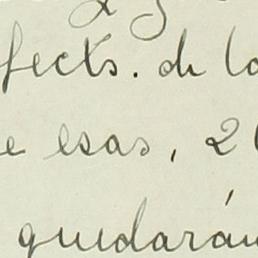 fects. de lo
e esas, 2
quedarán